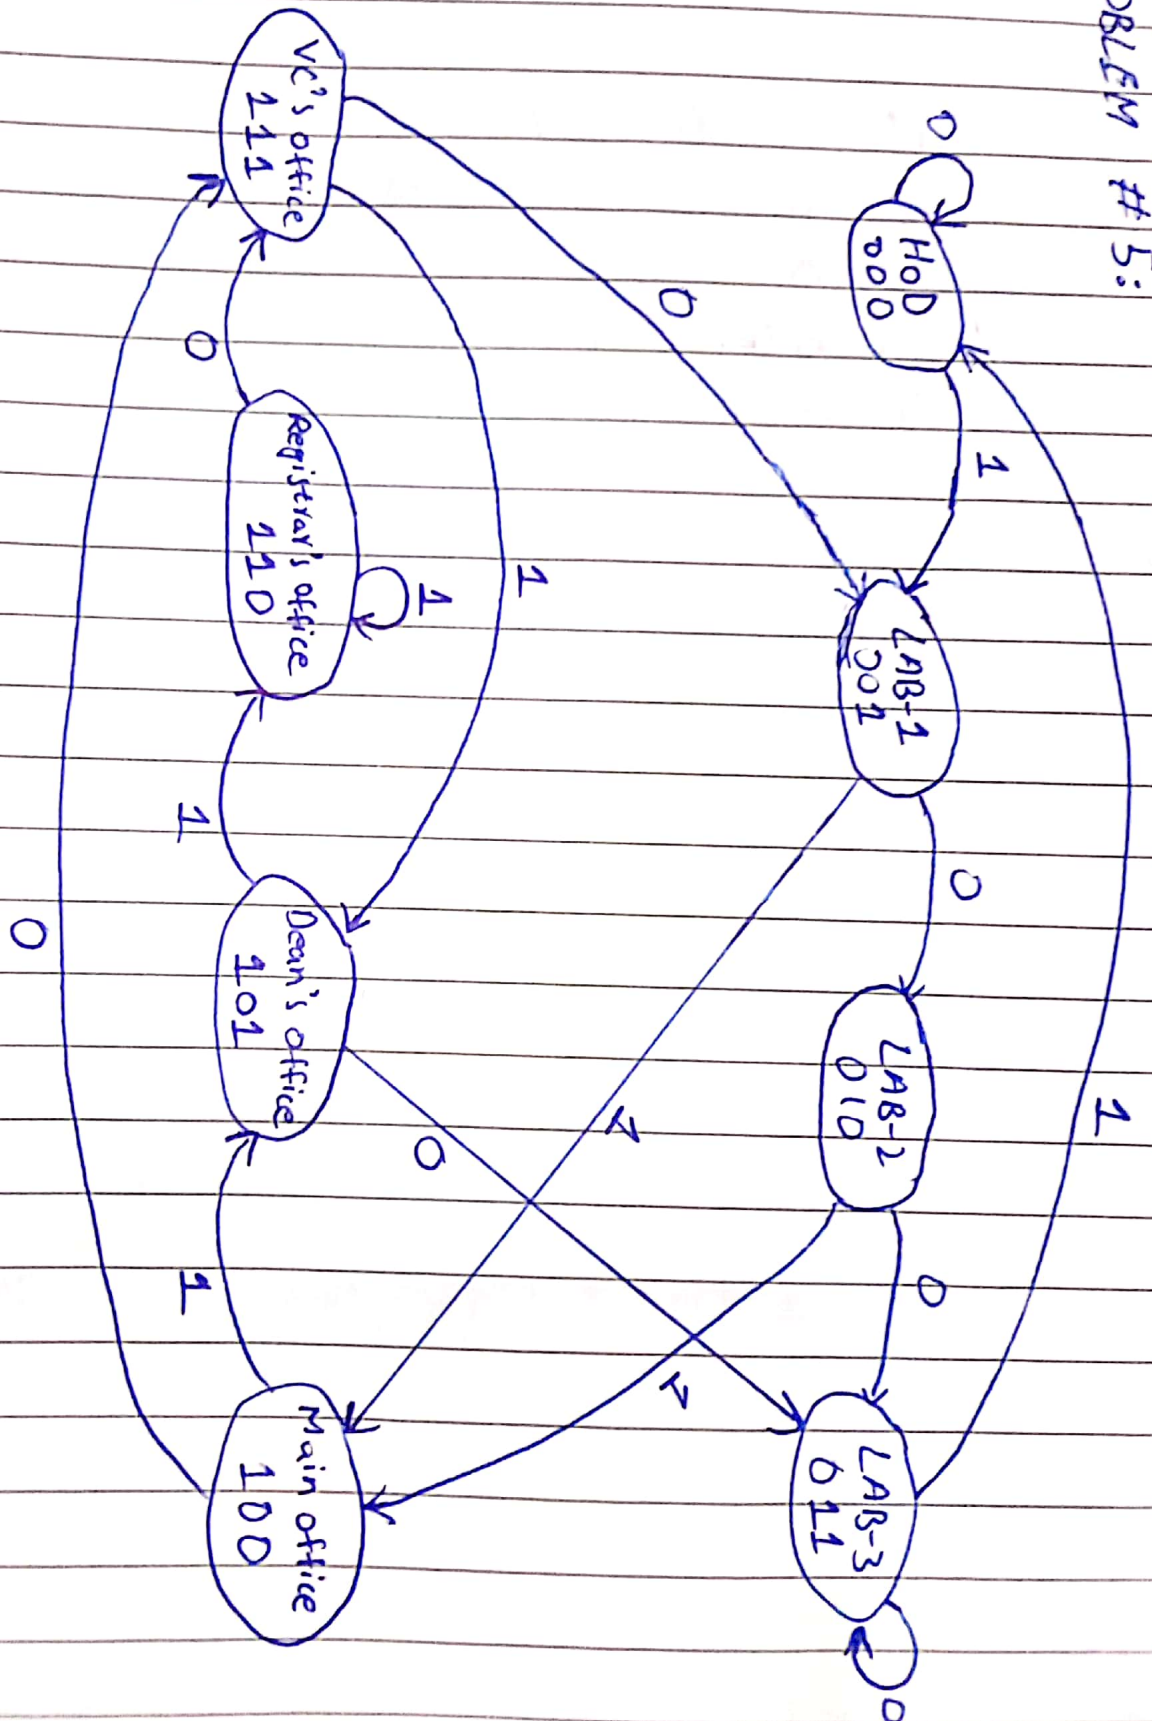 OBLEM #5:
0
HOD
000
1
LAB-1
001
0
LAB-2
010
0
LAB-3
011
0
1
0
1
1
1
0
VC's office
111
0
Registrar's office
110
1
1
Dean's office
101
1
Main office
100
0